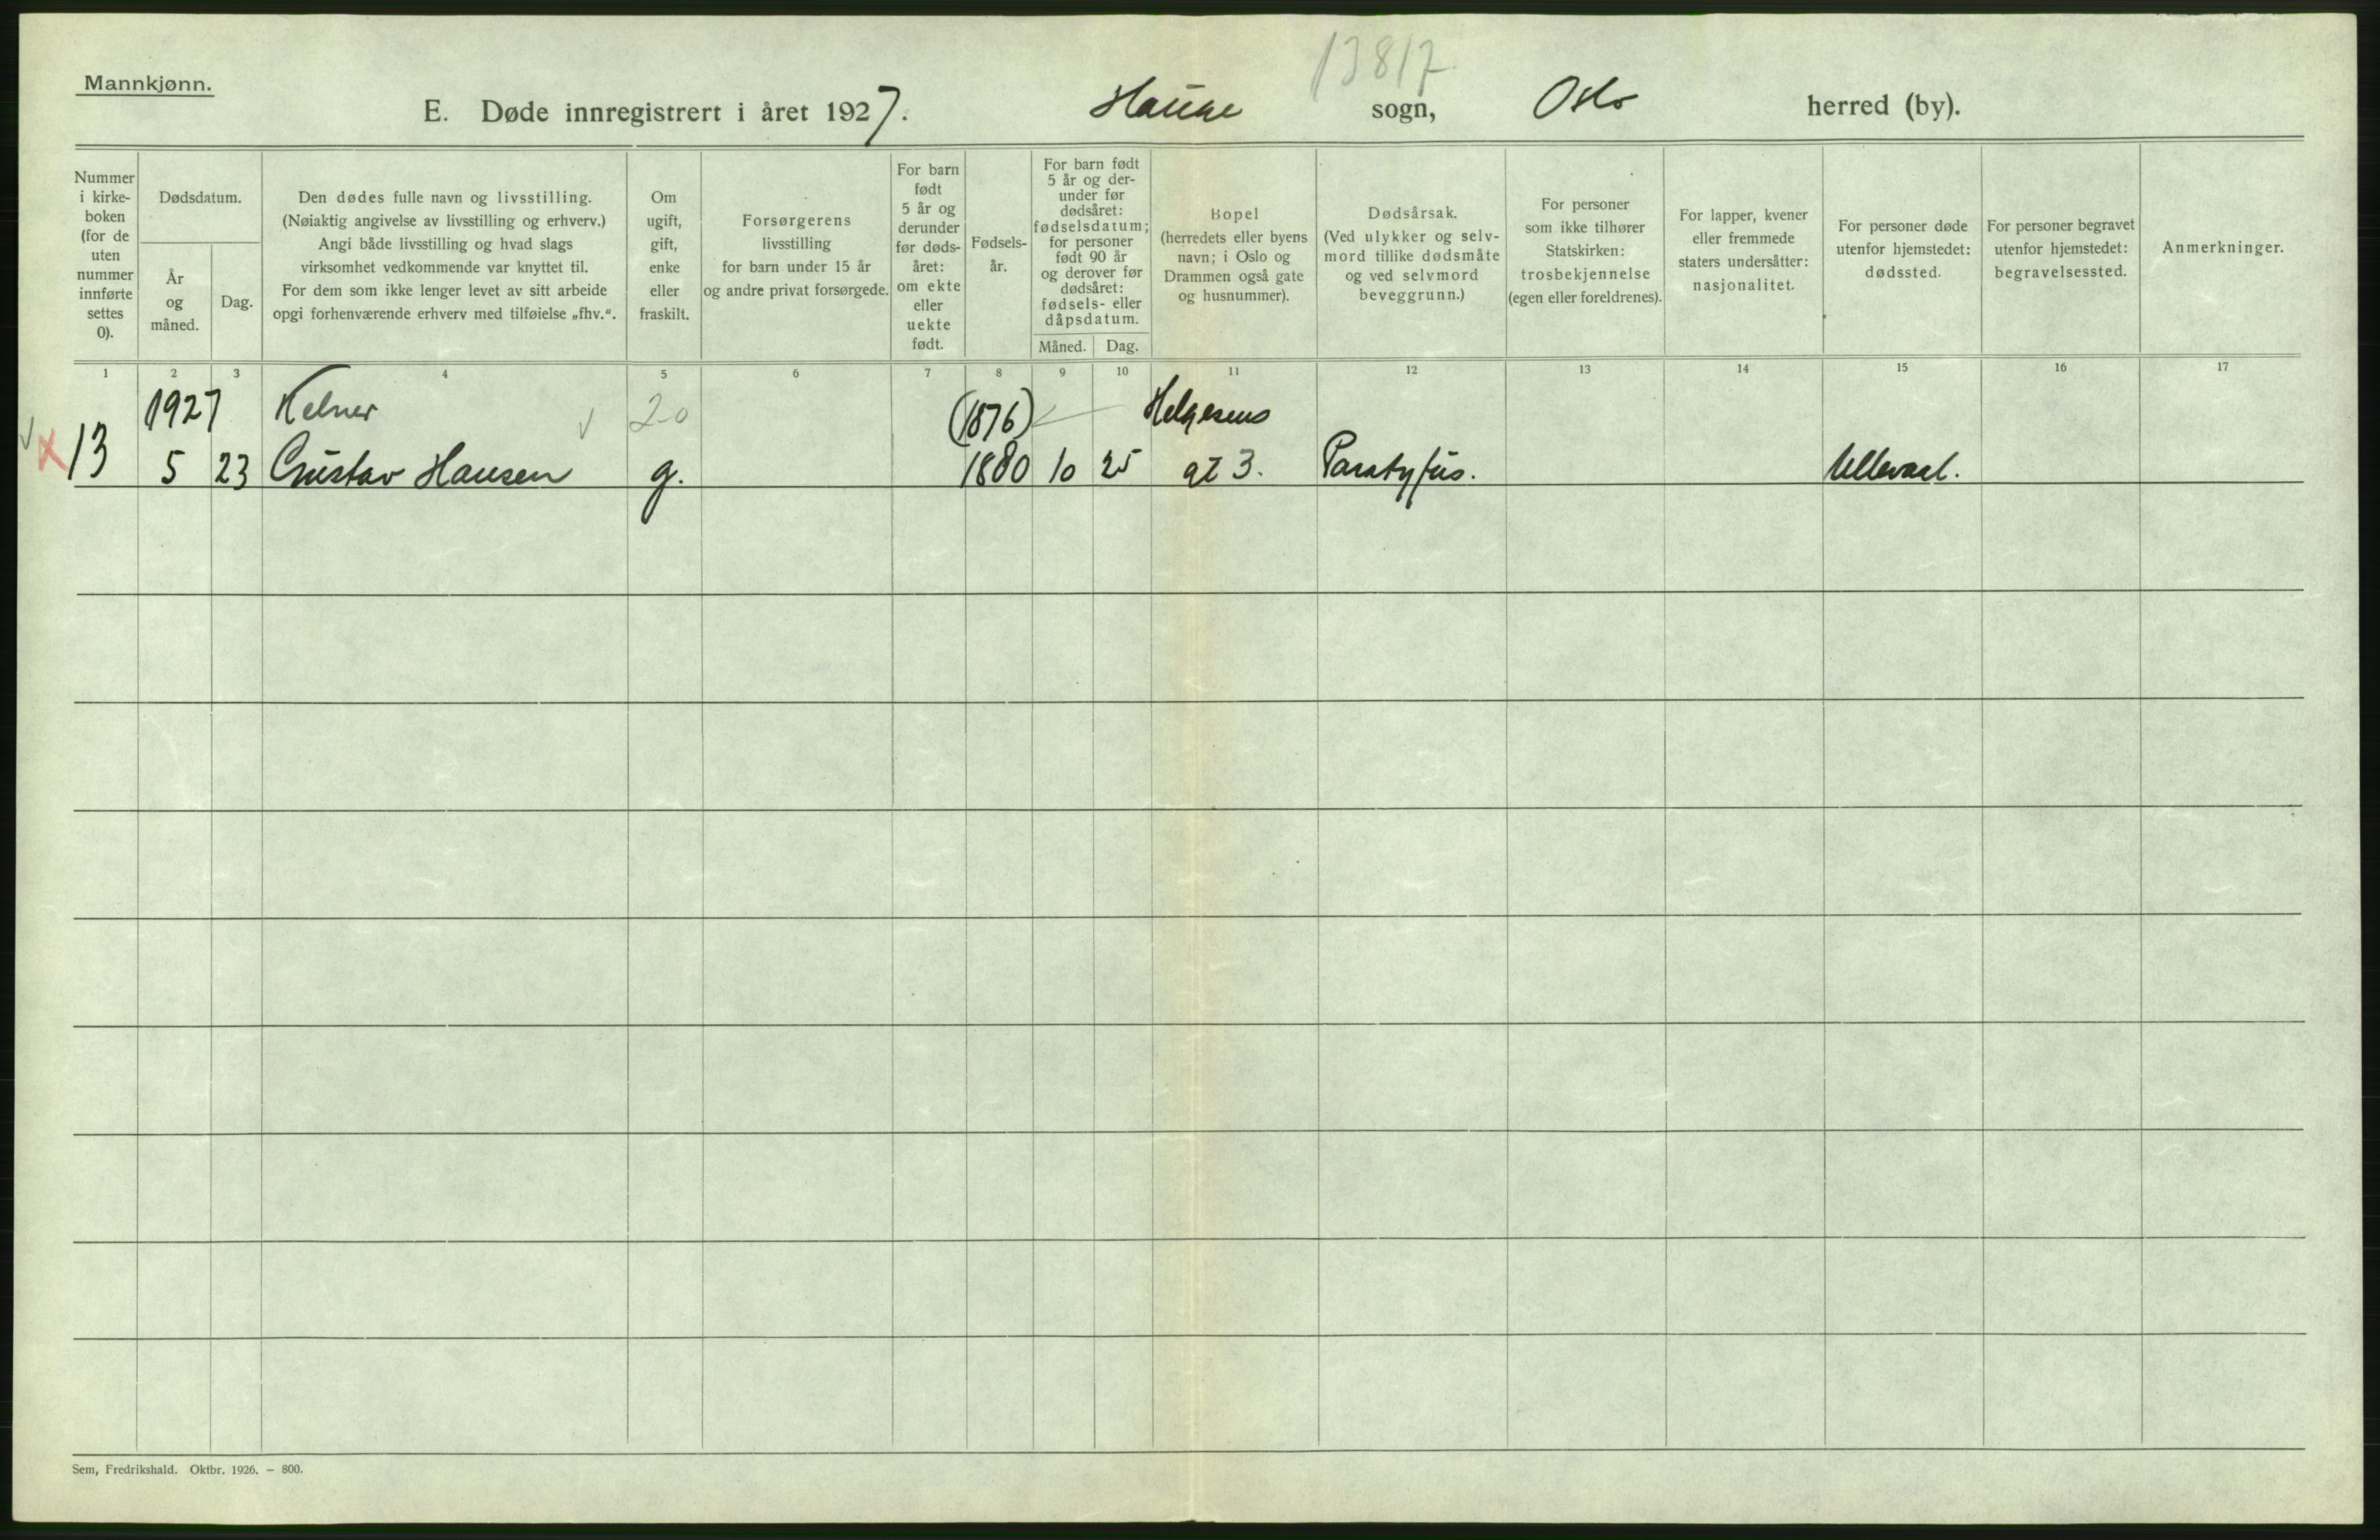 13817
Mannkjønn.
E. Døde innregistrert i året 1927. Hauge sogn, Oslo herred (by).
Nummer
i kirke-
boken
(for de
uten
nummer
innførte
settes
0).
Dødsdatum.
År
og
måned.
Dag.
Den dødes fulle navn og livsstilling.
(Nøiaktig angivelse av livsstilling og erhverv.)
Angi både livsstilling og hvad slags
virksomhet vedkommende var knyttet til.
For dem som ikke lenger levet av sitt arbeide
opgi forhenværende erhverv med tilføielse „fhv.“.
Om
ugift,
gift,
enke
eller
fraskilt.
Forsørgerens
livsstilling
for barn under 15 år
og andre privat forsørgede.
For barn
født
5 år og
derunder
før døds-
året:
om ekte
eller
uekte
født.
Fødsels-
år.
For barn født
5 år og der-
under før
dødsåret:
fødselsdatum;
for personer
født 90 år
og derover før
dødsåret:
fødsels- eller
dåpsdatum.
Måned. Dag.
Bopel
(herredets eller byens
navn; i Oslo og
Drammen også gate
og husnummer).
Dødsårsak.
(Ved ulykker og selv-
mord tillike dødsmåte
og ved selvmord
beveggrunn.)
For personer
som ikke tilhører
Statskirken:
trosbekjennelse
(egen eller foreldrenes).
For lapper, kvener
eller fremmede
staters undersåtter:
nasjonalitet.
For personer døde
utenfor hjemstedet:
dødssted.
For personer begravet
utenfor hjemstedet:
begravelsessted.
Anmerkninger.
1 2 3 4 5 6 7 8 9 10 11 12 13 14 15 16 17
1927 Kelner 20 (1876) Helgesens
13 5 23 Gustav Hansen g. 1880 10 25 gt 3. Paratyfus. Ullevaal.
Sem, Fredrikshald. Oktbr. 1926. – 800.